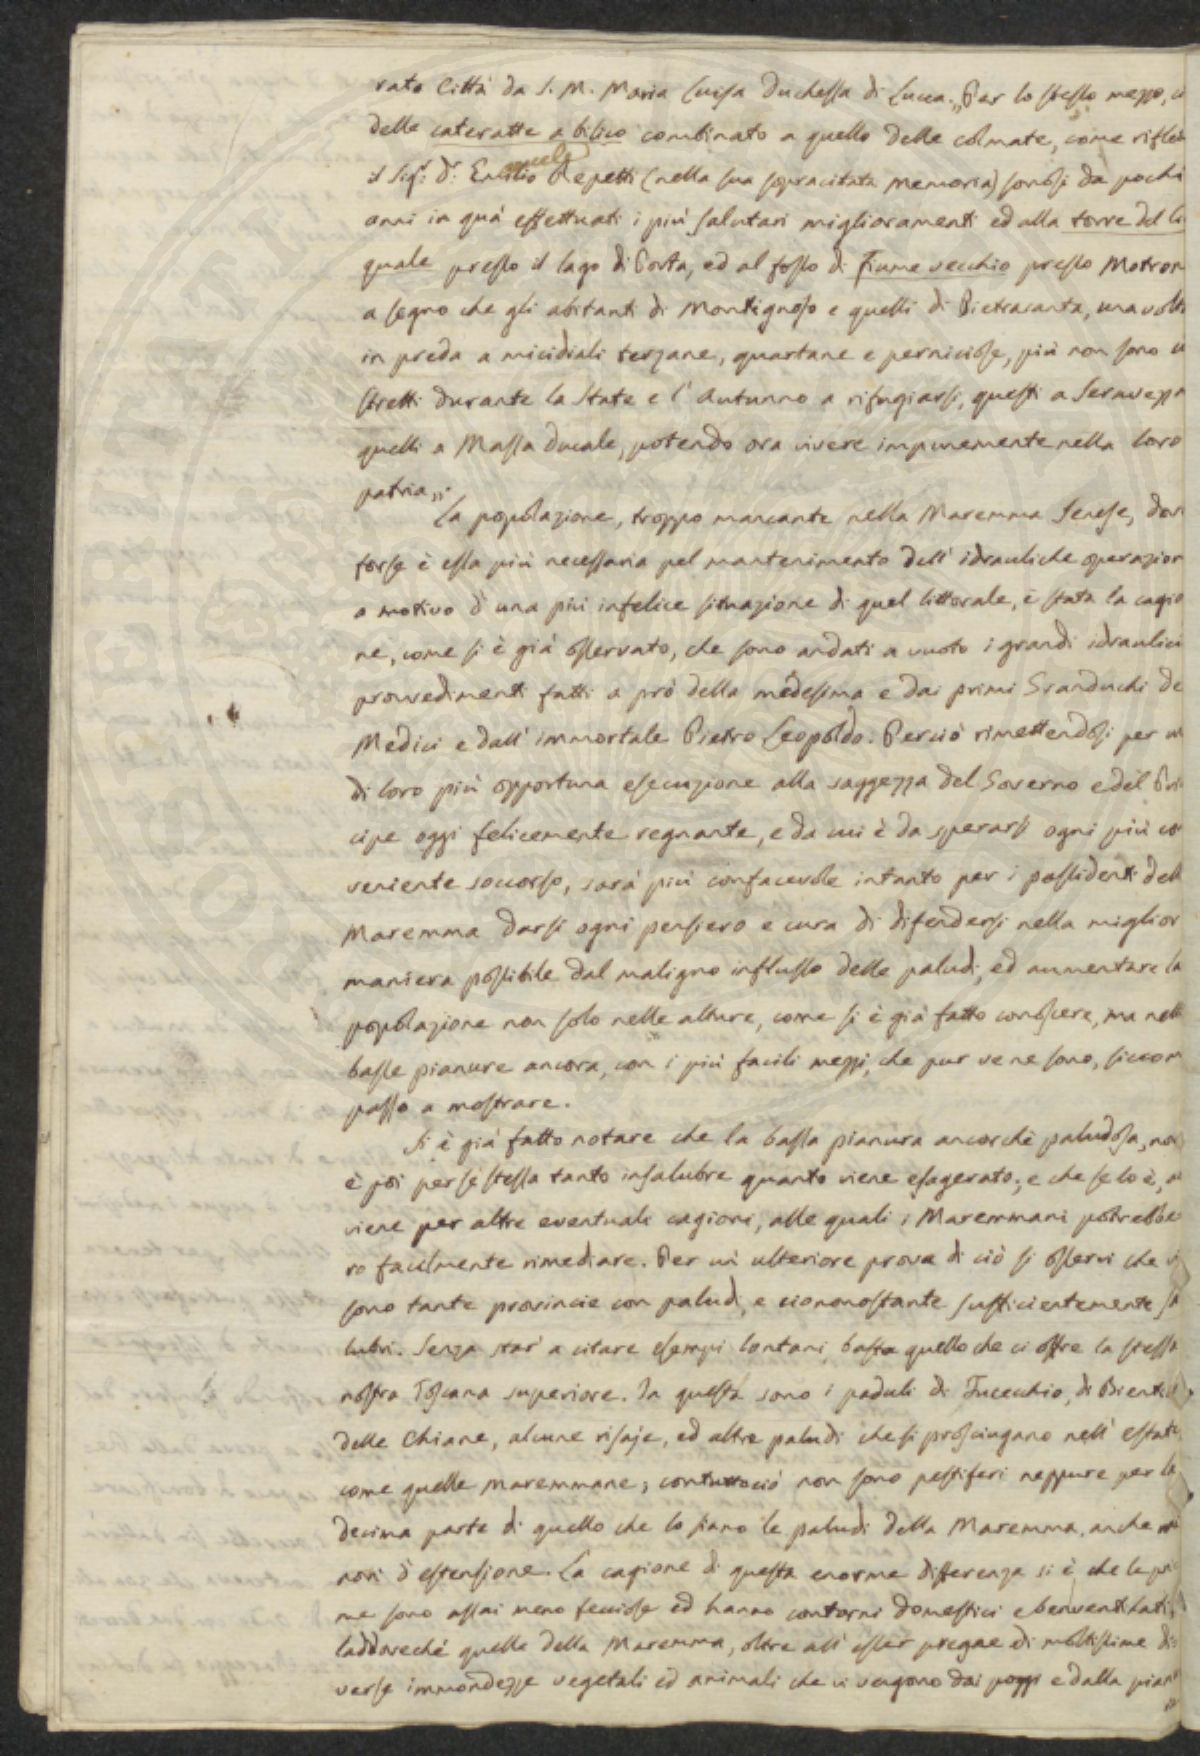 rato Città da S. M. Maria Luisa Duchessa di Lucca. „Per lo stesso mezzo, 
delle cateratte a bilico combinato a quello delle colmate, come riflette
il Sig.r D.r Emilio Repetti (nella sua sopracitata memoria) sonosi da pochi
anni in quà effettuati i più salutari miglioramenti ed alla torre del 
quale presso il lago di Porta, ed al fosso di fiume vecchio presso Motron
a segno che gli abitanti di Montignoso e quelli di Pietrasanta, una volta
in preda a micidiali terzane, quartane e perniciose, più non sono 
stretti durante la State e l'Autunno a rifugiarsi, questi a Seravezza
quelli a Massa Ducale, potendo ora vivere impunemente nella loro
patria„.
La popolazione, troppo mancante nella Maremma Senese, dov
forse è essa più necessaria pel mantenimento dell'idrauliche operazion
a motivo d'una più infelice situazione di quel littorale, è stata la cagio
ne, come si è già osservato, che sono andati a vuoto i grandi idraulici
provvedimenti fatti a prò della medesima e dai primi Granduchi de
Medici e dall'immortale Pietro Leopoldo. Perciò rimettendosi per 
di loro più opportuna esecuzione alla saggezza del Governo e del Prin
cipe oggi felicemente regnante, e da cui è da sperarsi ogni più co
veniente soccorso, sarà più confacevole intanto per i possidenti dell
Maremma darsi ogni pensiero e cura di difendersi nella miglior
maniera possibile dal maligno influsso delle paludi, ed aumentare la
popolazione non solo nelle alture, come si è già fatto conoscere, ma nelle
basse pianure ancora, con i più facili mezzi, che pur ve ne sono, siccom
passo a mostrare.
Si è già fatto notare che la bassa pianura ancorchè paludosa, non
è poi per sè stessa tanto insalubre quanto viene esagerato; e che se lo è, 
viene per altre eventuali cagioni, alle quali i Maremmani potrebbe
ro facilmente rimediare. Per un'ulteriore prova di ciò si osservi che vi
sono tante provincie con paludi, e ciononostante sufficientemente sa
lubri. Senza star a citare esempi lontani, basta quello che ci offre la stessa
nostra Toscana superiore. In questa sono i paduli di Fucecchio, di Bientina
delle Chiane, alcune risaje, ed altre paludi che si prosciugano nell'estate
come quelle maremmane; contuttociò non sono pestiferi neppure per la
decima parte di quello che lo siano le paludi della Maremma, anche mi
nori d'estensione. La cagione di questa enorme differenza si è, che le pri
me sono assai meno fecciose ed hanno contorni domestici e benventilati,
laddovechè quelle della Maremma, oltre all'esser pregne di moltissime di
verse immondezze vegetali ed animali che vi vengono dai poggi e dalla pian